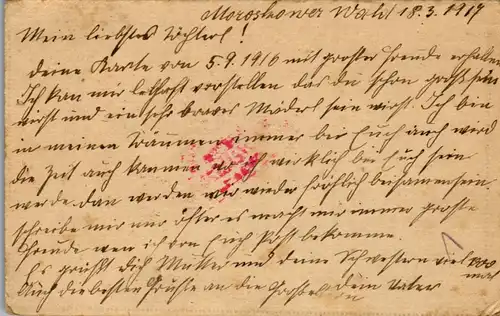 Moroskower Wald 18.3.1917
Mein liebstes Töchterl!
deine Karte von 5.9.1916 mit groster Freude erhalten
Ich kan mir lebhaft vorstellen das du schon groß sein
wirst und ein sehr braves Mäderl sein wirst. Ich bin
in meinen Träumen immer bei Euch auch wird
die Zeit auch kommen wo ich wirklich bei Euch sein
werde. dan werden wir wieder fröhlich beisamensein,
schreibe mir nur öfter es macht mir immer groste
Freude wen ich von Euch Post bekomme
Es grüßt dich Mutter und deine Schwestern viel 1000 mal
Auch die besten Grüße an die Großel dein Vater